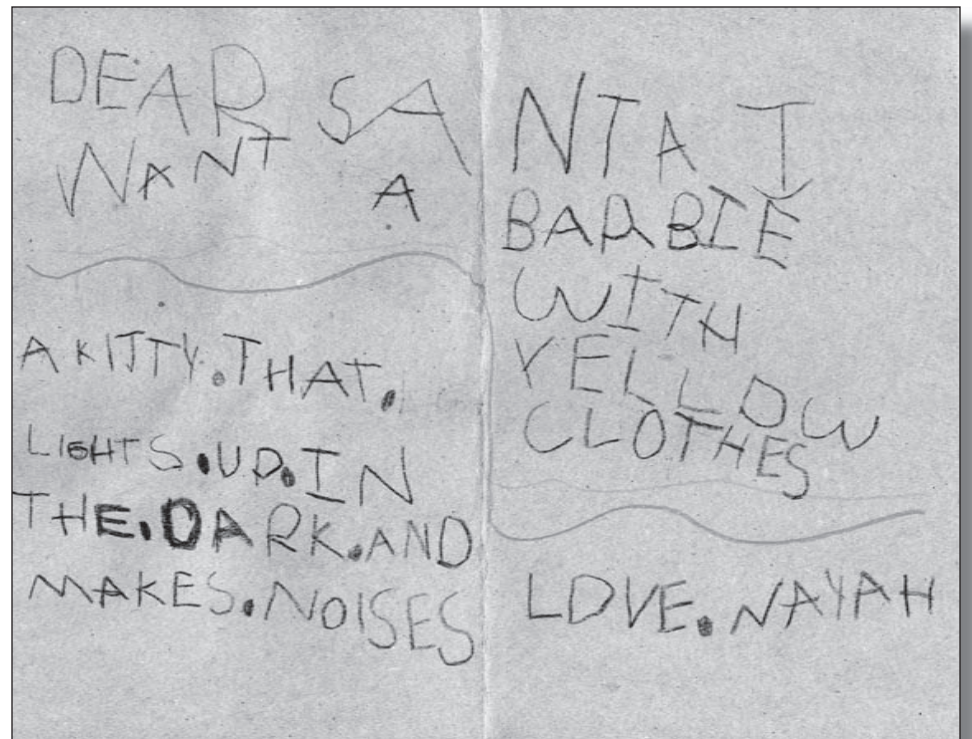 DEAR SANTA I
WANT A BARBIE
WITH
YELLOW
CLOTHES
A KITTY.THAT.
LIGHTS.UP.IN
THE.DARK.AND
MAKES.NOISES
LOVE.NAYAH